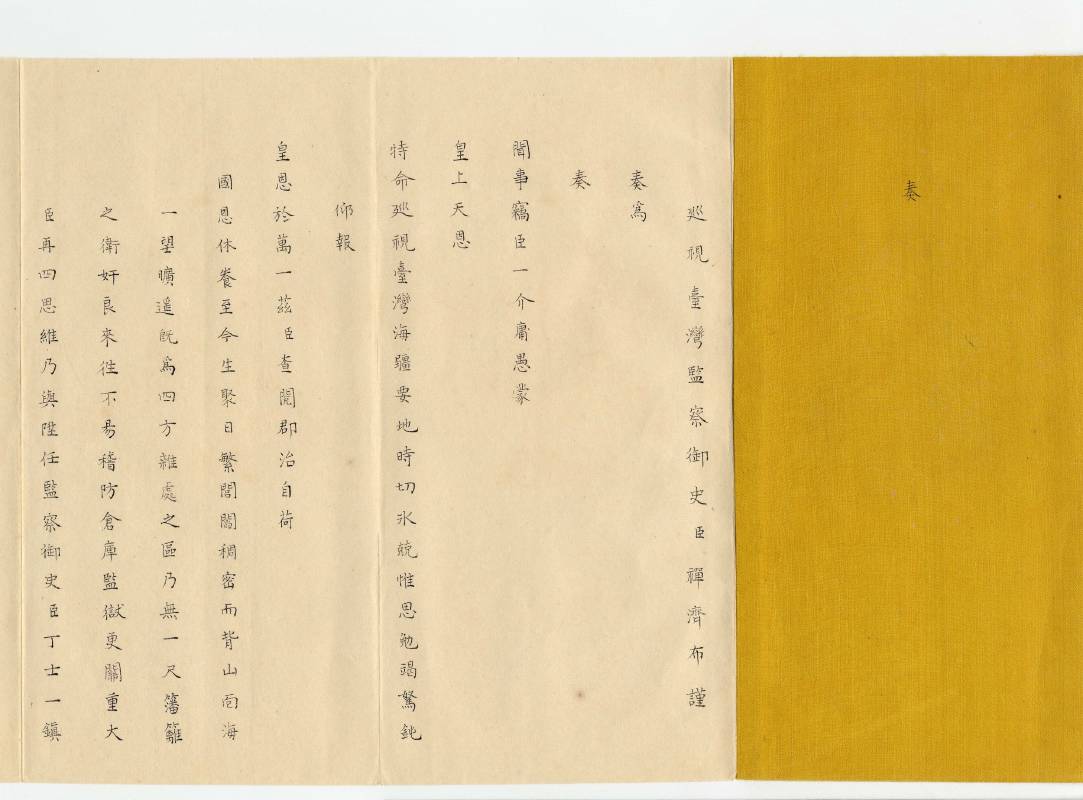 奏
巡視臺灣監察御史臣禪濟布謹
奏爲
奏
聞事竊臣一介庸愚蒙
皇上天恩
特命廵視臺灣海疆要地時切氷兢惟思勉竭駑鈍
仰報
皇恩於萬一茲臣查閱郡治自荷
國恩休養至今生聚日繁閭閻稠密而背山面海
一望曠遥旣爲四方雜處之區乃無一尺籓籬
之衛奸良來徃不易稽防倉庫監獄更關重大
臣再四思維乃與陞任監察御史臣丁士一鎭